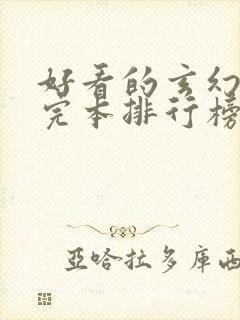 好看的玄幻
完本排行榜
亞哈拉多庫西